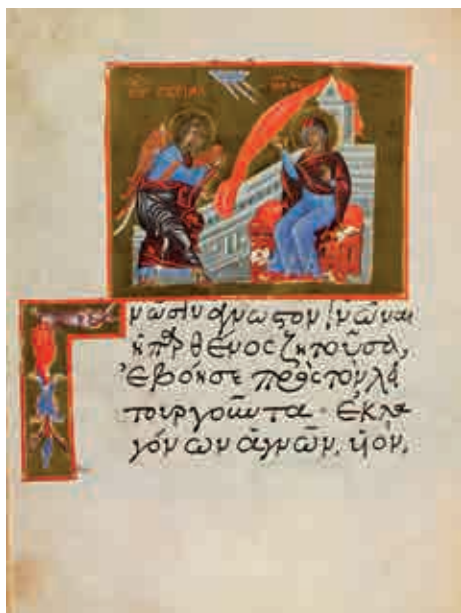 Γνῶσιν ἄγνωστον γνῶναι
ἡ παρθένος ζητοῦσα,
ἐβόησε πρὸς τὸν λει
τουργοῦντα · ἐκ λα
γόνων ἁγνῶν, υἱὸν,